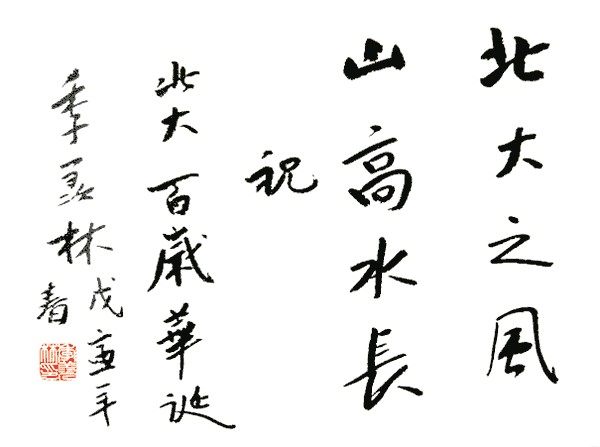 北大之風
山高水長
祝
北大百歲華誕
季羡林
戊寅年
春